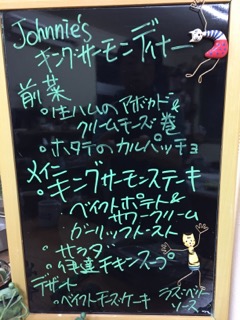 Johnnie's
キングサーモンディナー
前菜
・生ハムのアボカド&
クリームチーズ巻
・ホタテのカルパッチョ
メイン
・キングサーモンステーキ
ベイクトポテト&
サワークリーム
ガーリックトースト
・サラダ
・伊達チキンスープ
デザート
・ベイクトチーズケーキ
ラズベリー
ソース